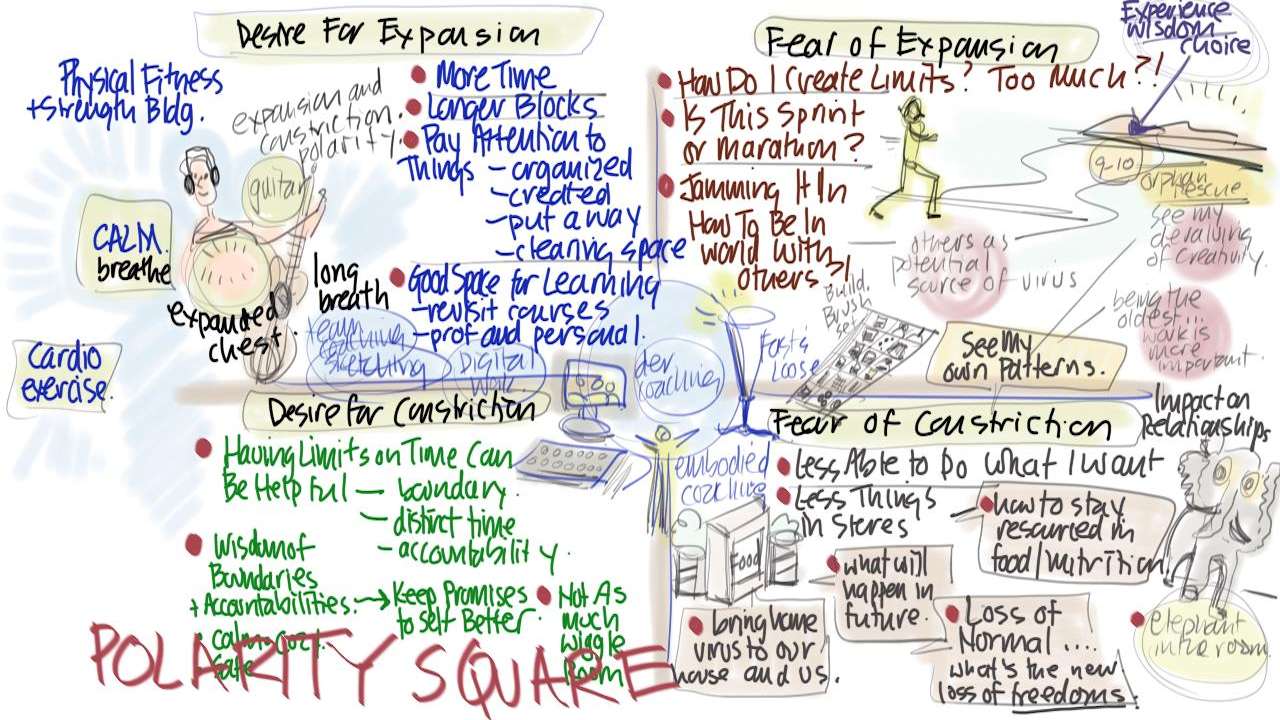 Desire For Expansion
Physical Fitness
+ Strength Bldg.
expansion and
constriction.
polarity.
guitar
CALM.
breathe
expanded
chest
long
breath
Cardio
exercise.
More Time
Longer Blocks
Pay Attention to
Things - organized
- created
- put away
- clearing space
Good Space for Learning
- revisit courses
- prof and personal.
team
coaching
sketching
Digital
work
dev
coaching
embodied
Fear of Expansion
Experience
wisdom
choice
How Do I Create Limits? Too Much?!
Is This Sprint
or Marathon?
Jamming It In
How To Be In
world with
others?!
9-10
orphan
rescue
others as
potential
source of virus
see my
devaluing
of Creativity.
being the
oldest...
work is
more
important.
Build.
Brush
set
Fast &
Loose
See My
own Patterns.
Desire for Constriction
Having Limits on Time Can
Be Helpful - boundary.
- distinct time
- accountability.
Wisdom of
Boundaries
+ Accountabilities. → Keep Promises
to Self Better.
Not As
much
wiggle
Room
calm cozy
safe
Fear of Constriction
Impact on
Relationships
Less Able to Do What I Want
Less Things
in Stores
how to stay
resourced in
food/nutrition.
Food
what will
happen in
future.
bring home
virus to our
house and us.
Loss of
Normal ....
what's the new.
loss of freedoms.
elephant
in the room.
POLARITY SQUARE